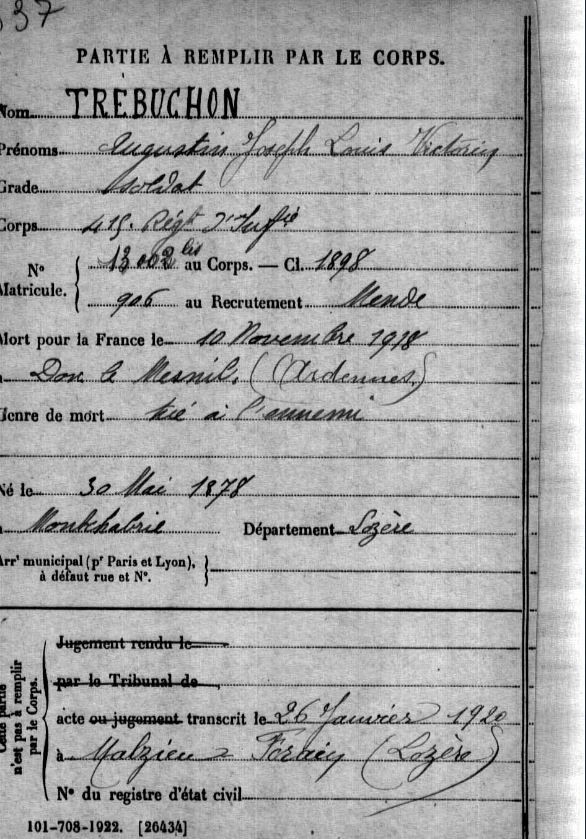 37
PARTIE À REMPLIR PAR LE CORPS.
Nom TRÉBUCHON
Prénoms Augustin Joseph Louis Victorin
Grade Soldat
Corps 415. Régt d'Infie
N° Matricule. 13002 bis au Corps. — Cl. 1898
906 au Recrutement Mende
Mort pour la France le 10 Novembre 1918
Dom le Mesnil. (Ardennes)
Genre de mort tué à l'ennemi
Né le 30 Mai 1878
Montchabrie Département Lozère
Arr' municipal (pr Paris et Lyon),
à défaut rue et N°.
Jugement rendu le
par le Tribunal de
acte ou jugement transcrit le 26 Janvier 1920
à Malzieu Forain (Lozère)
N° du registre d'état civil
Cette partie
n'est pas à remplir
par le Corps.
101-708-1922. [26434]